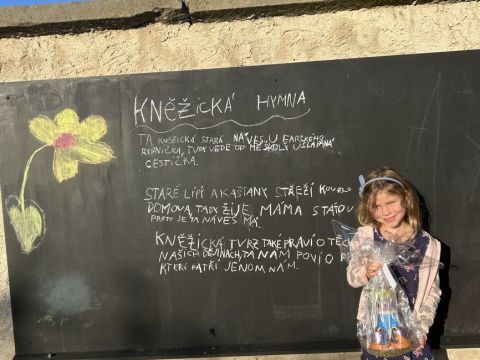 KNĚŽICKÁ HYMNA
TA KNĚŽICKÁ STARÁ NÁVES, U FARSKÉHO
RYBNÍČKA, TUDY VEDE OD MÉ ŠKOLY UŠLAPANÁ
CESTIČKA.
STARÉ LÍPY A KAŠTANY STŘEŽÍ KOUZLO
DOMOVA, TADY ŽIJE MÁMA S TÁTOU
PROTO JE TA NÁVES MÁ.
KNĚŽICKÁ TVRZ TAKÉ PRAVÍ O TĚCH
NAŠICH DĚJINÁCH, TA NÁM POVÍ O
KTERÍ PATŘÍ JENOM NÁM.